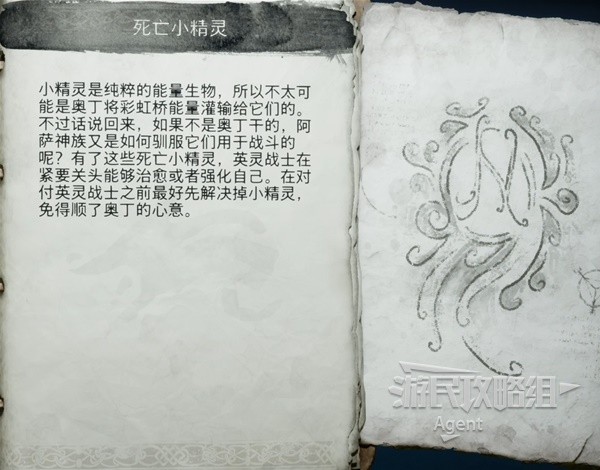 死亡小精灵
小精灵是纯粹的能量生物，所以不太可
能是奥丁将彩虹桥能量灌输给它们的。
不过话说回来，如果不是奥丁干的，阿
萨神族又是如何驯服它们用于战斗的
呢？有了这些死亡小精灵，英灵战士在
紧要关头能够治愈或者强化自己。在对
付英灵战士之前最好先解决掉小精灵，
免得顺了奥丁的心意。
游民攻略组
Agent